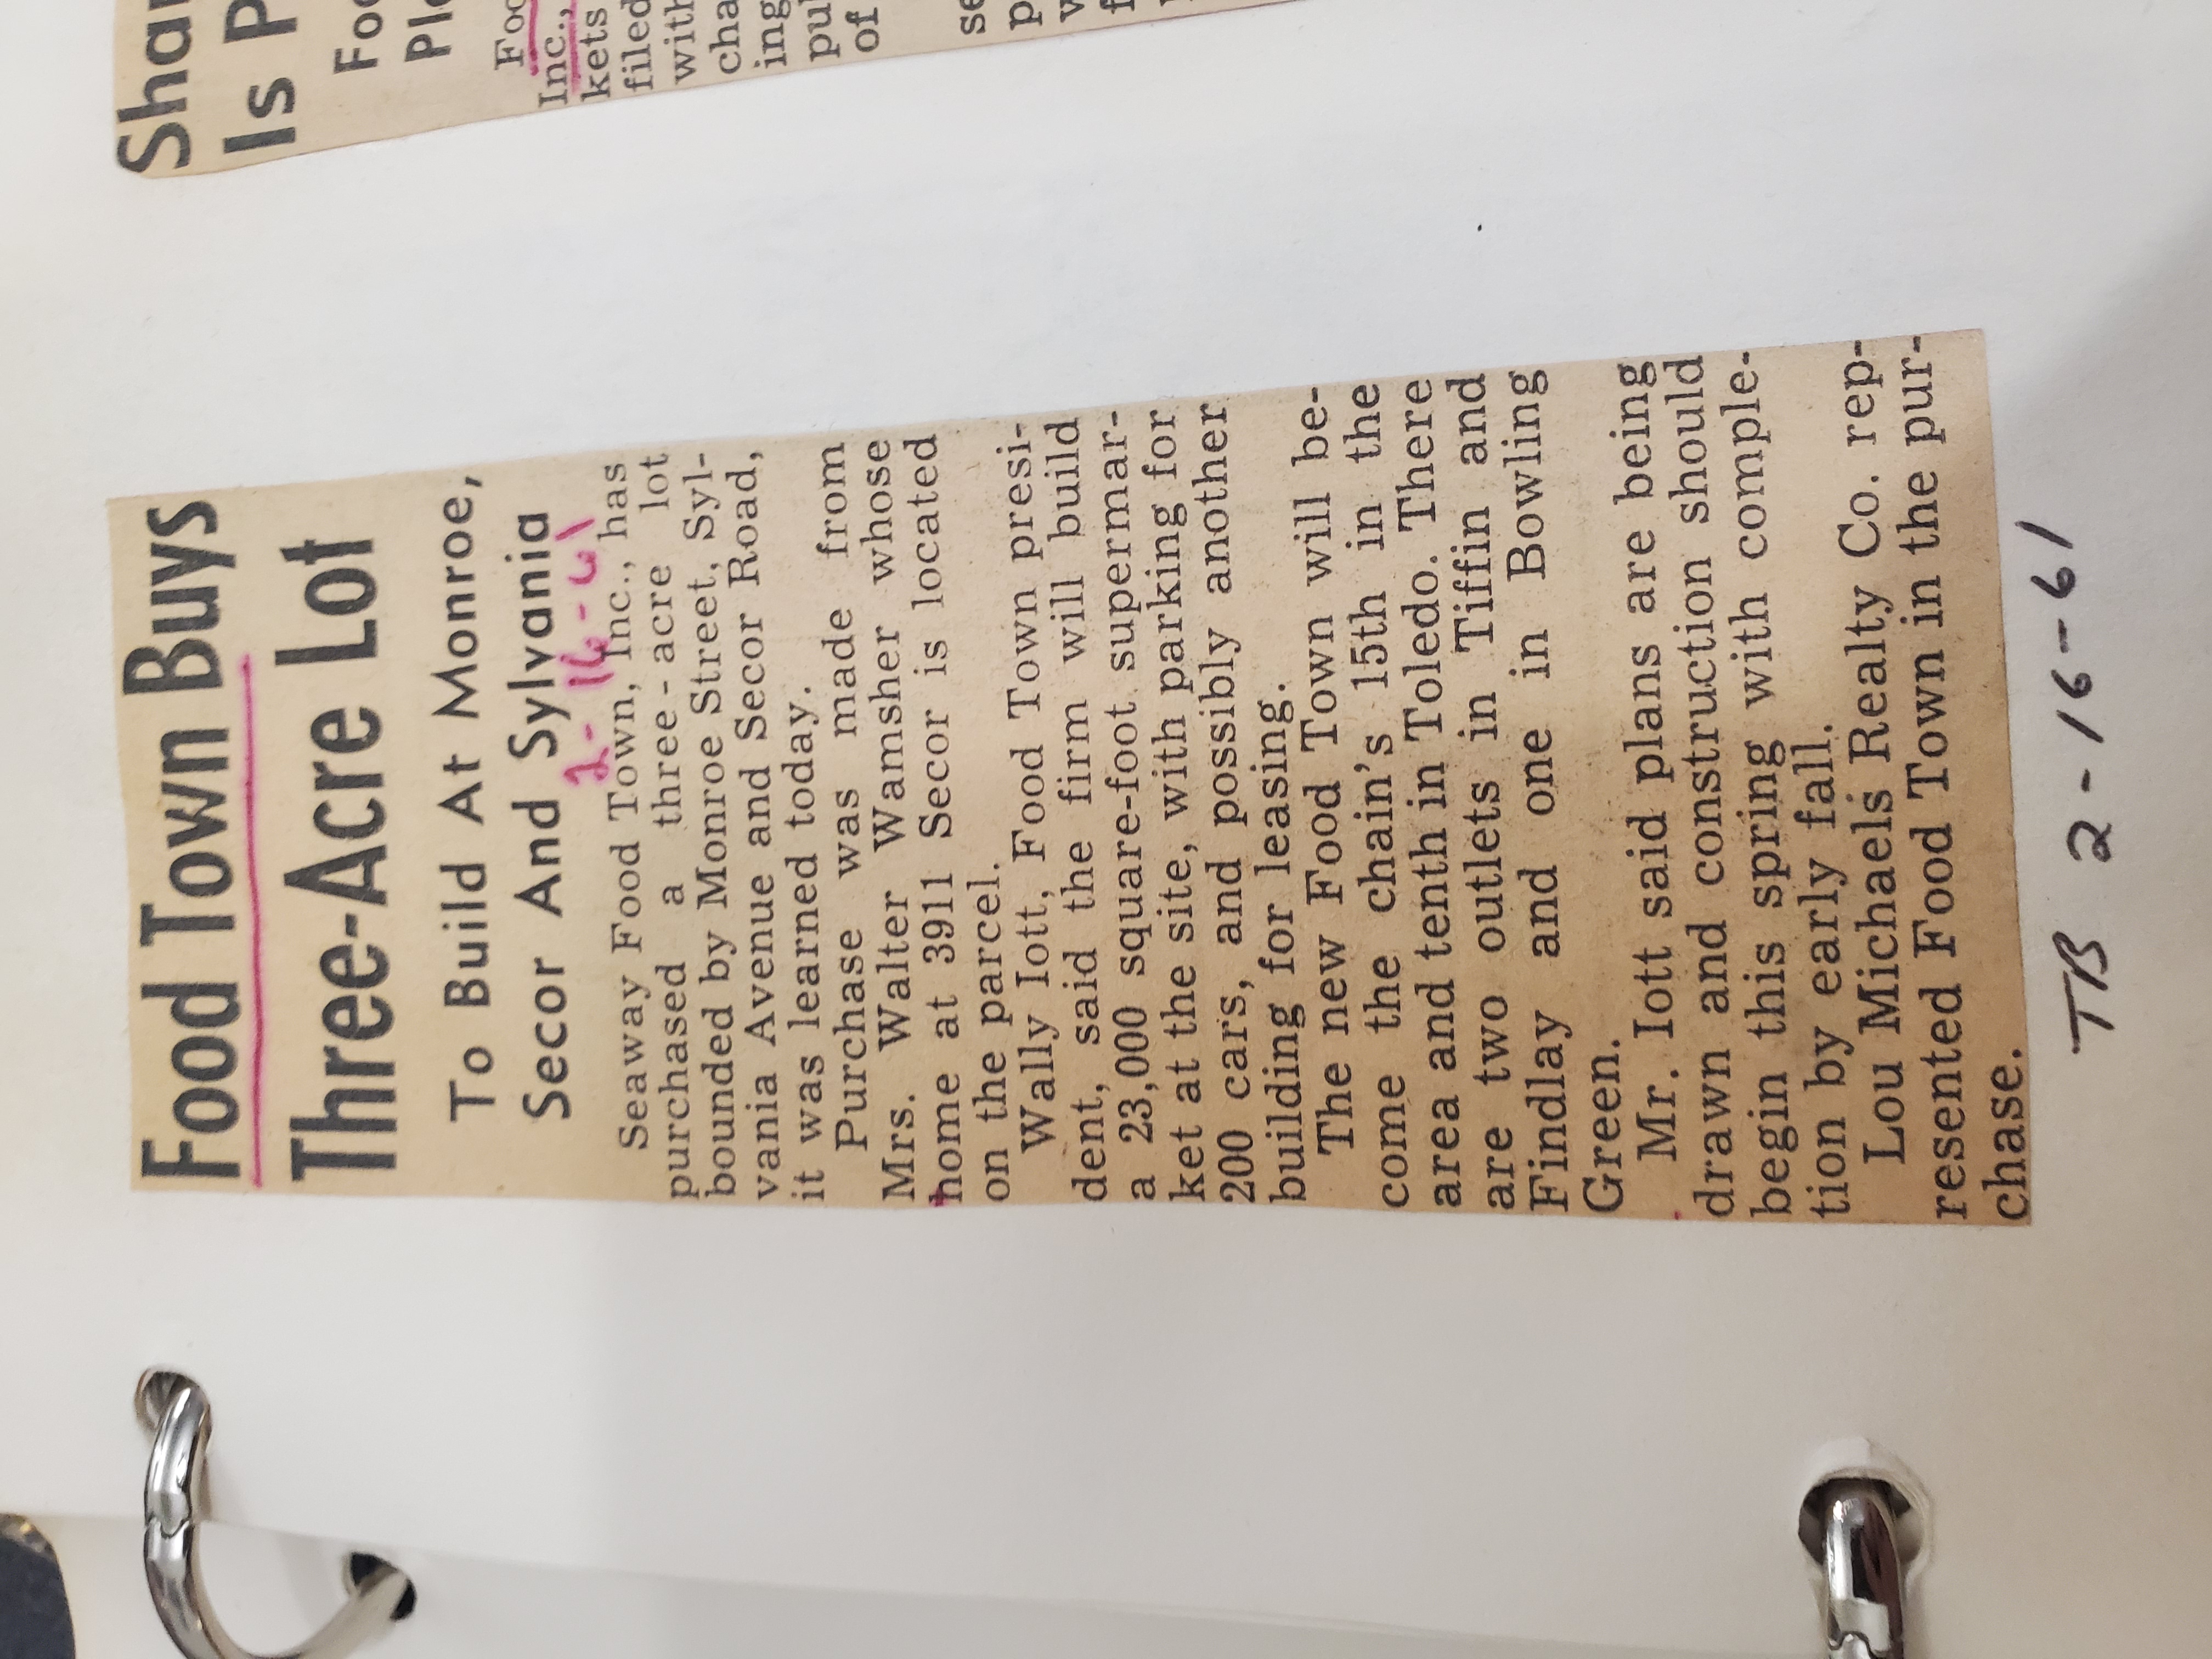 Food Town Buys
Three-Acre Lot
To Build At Monroe,
Secor And Sylvania
2-16-61
Seaway Food Town, Inc., has
purchased a three-acre lot
bounded by Monroe Street, Syl-
vania Avenue and Secor Road,
it was learned today.
Purchase was made from
Mrs. Walter Wamsher whose
home at 3911 Secor is located
on the parcel.
Wally Iott, Food Town presi-
dent, said the firm will build
a 23,000 square-foot supermar-
ket at the site, with parking for
200 cars, and possibly another
building for leasing.
The new Food Town will be-
come the chain's 15th in the
area and tenth in Toledo. There
are two outlets in Tiffin and
Findlay and one in Bowling
Green.
Mr. Iott said plans are being
drawn and construction should
begin this spring with comple-
tion by early fall.
Lou Michaels Realty Co. rep-
resented Food Town in the pur-
chase.
TB 2-16-61
Shar
Is P
Foo
Pla
Foo
Inc.,
kets
filed
with
cha
ing
pul
of
se
p